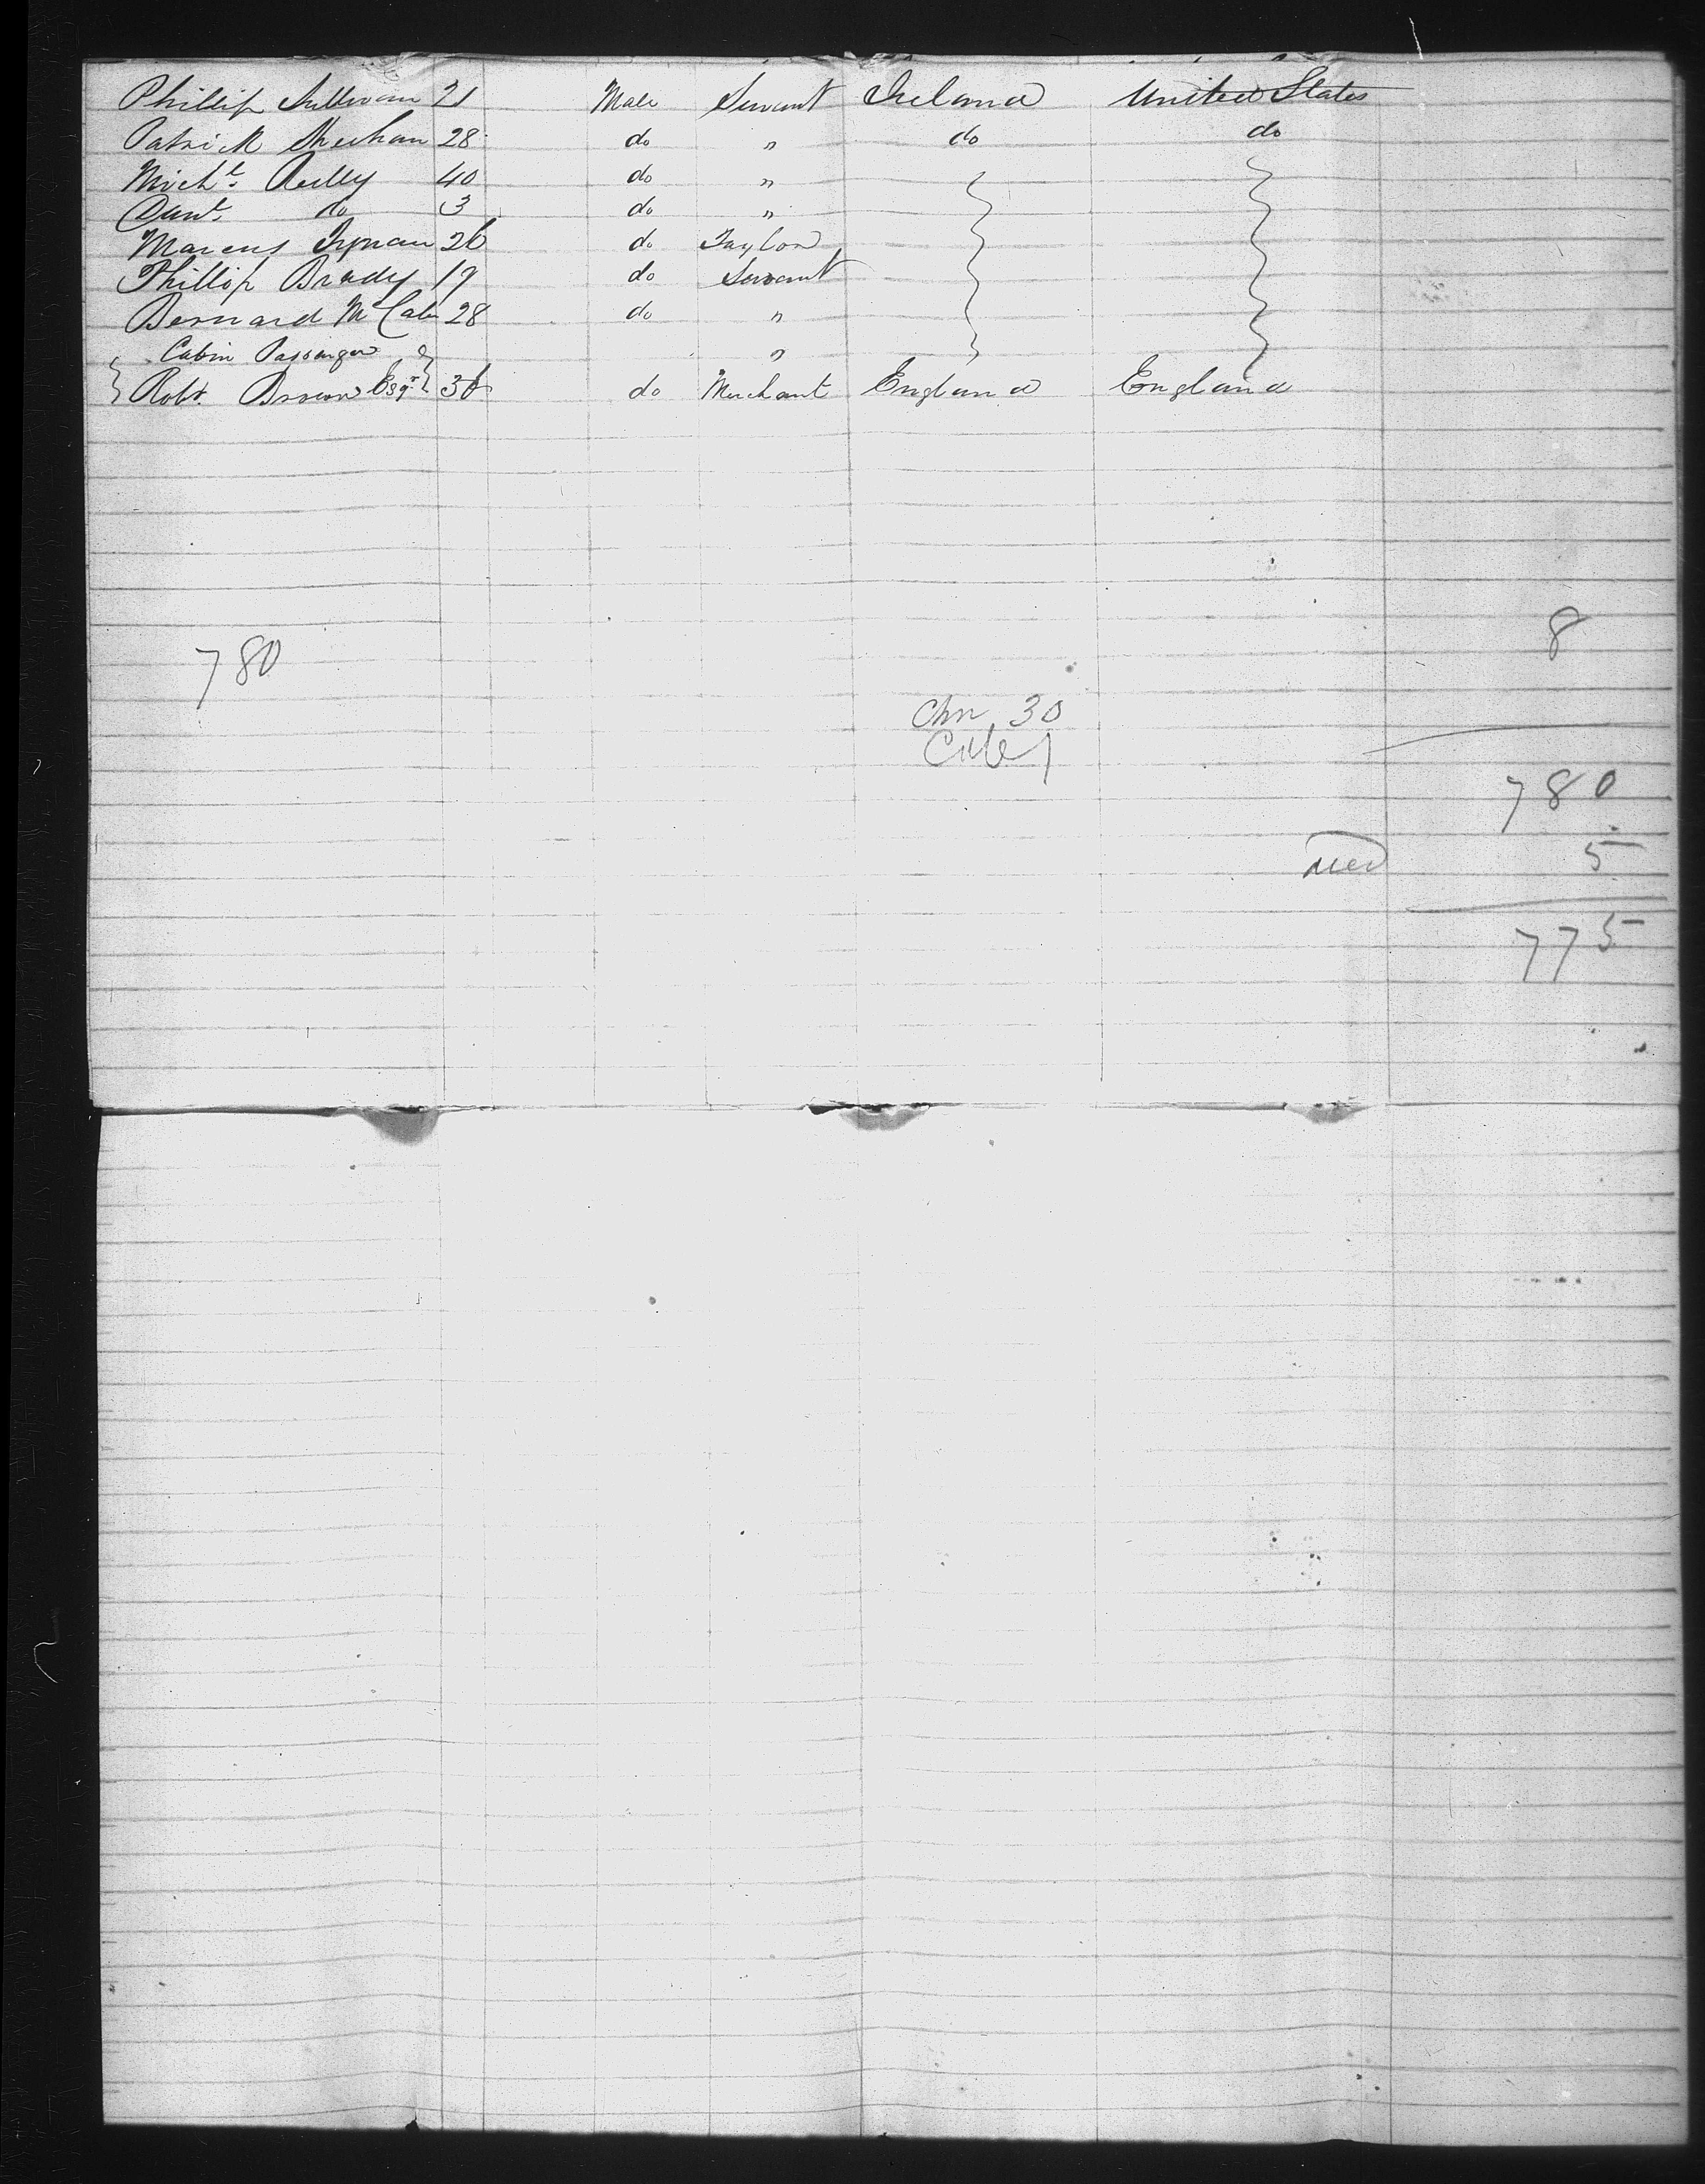 Phillip Sullivan 21 Male Servant Ireland United States
Patrick Sheehan 28 do " do do
Michl. Reilly 40 do "
Danl. do 3 do "
Marcus 26 do Taylor
Phillip Brady 19 do Servant
Bernard McCabe 28 do "
Cabin Passenger "
Robt. Brown Esqr. 36 do Merchant England England
8
780
Chn 30
1
780
5
775